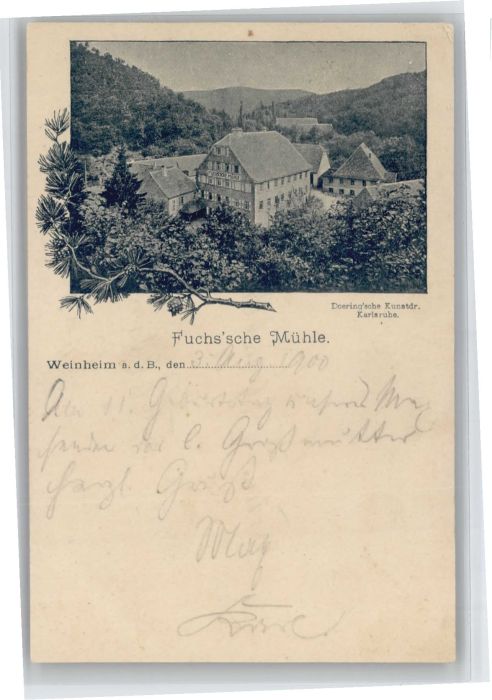 Doering'sche Kunstdr.
Karlsruhe.
Fuchs'sche Mühle.
Weinheim a. d. B., den 3. Aug 1900
Am 11. Geburtstag unseres
senden der l. Großmutter
herzl. Gruß
Max